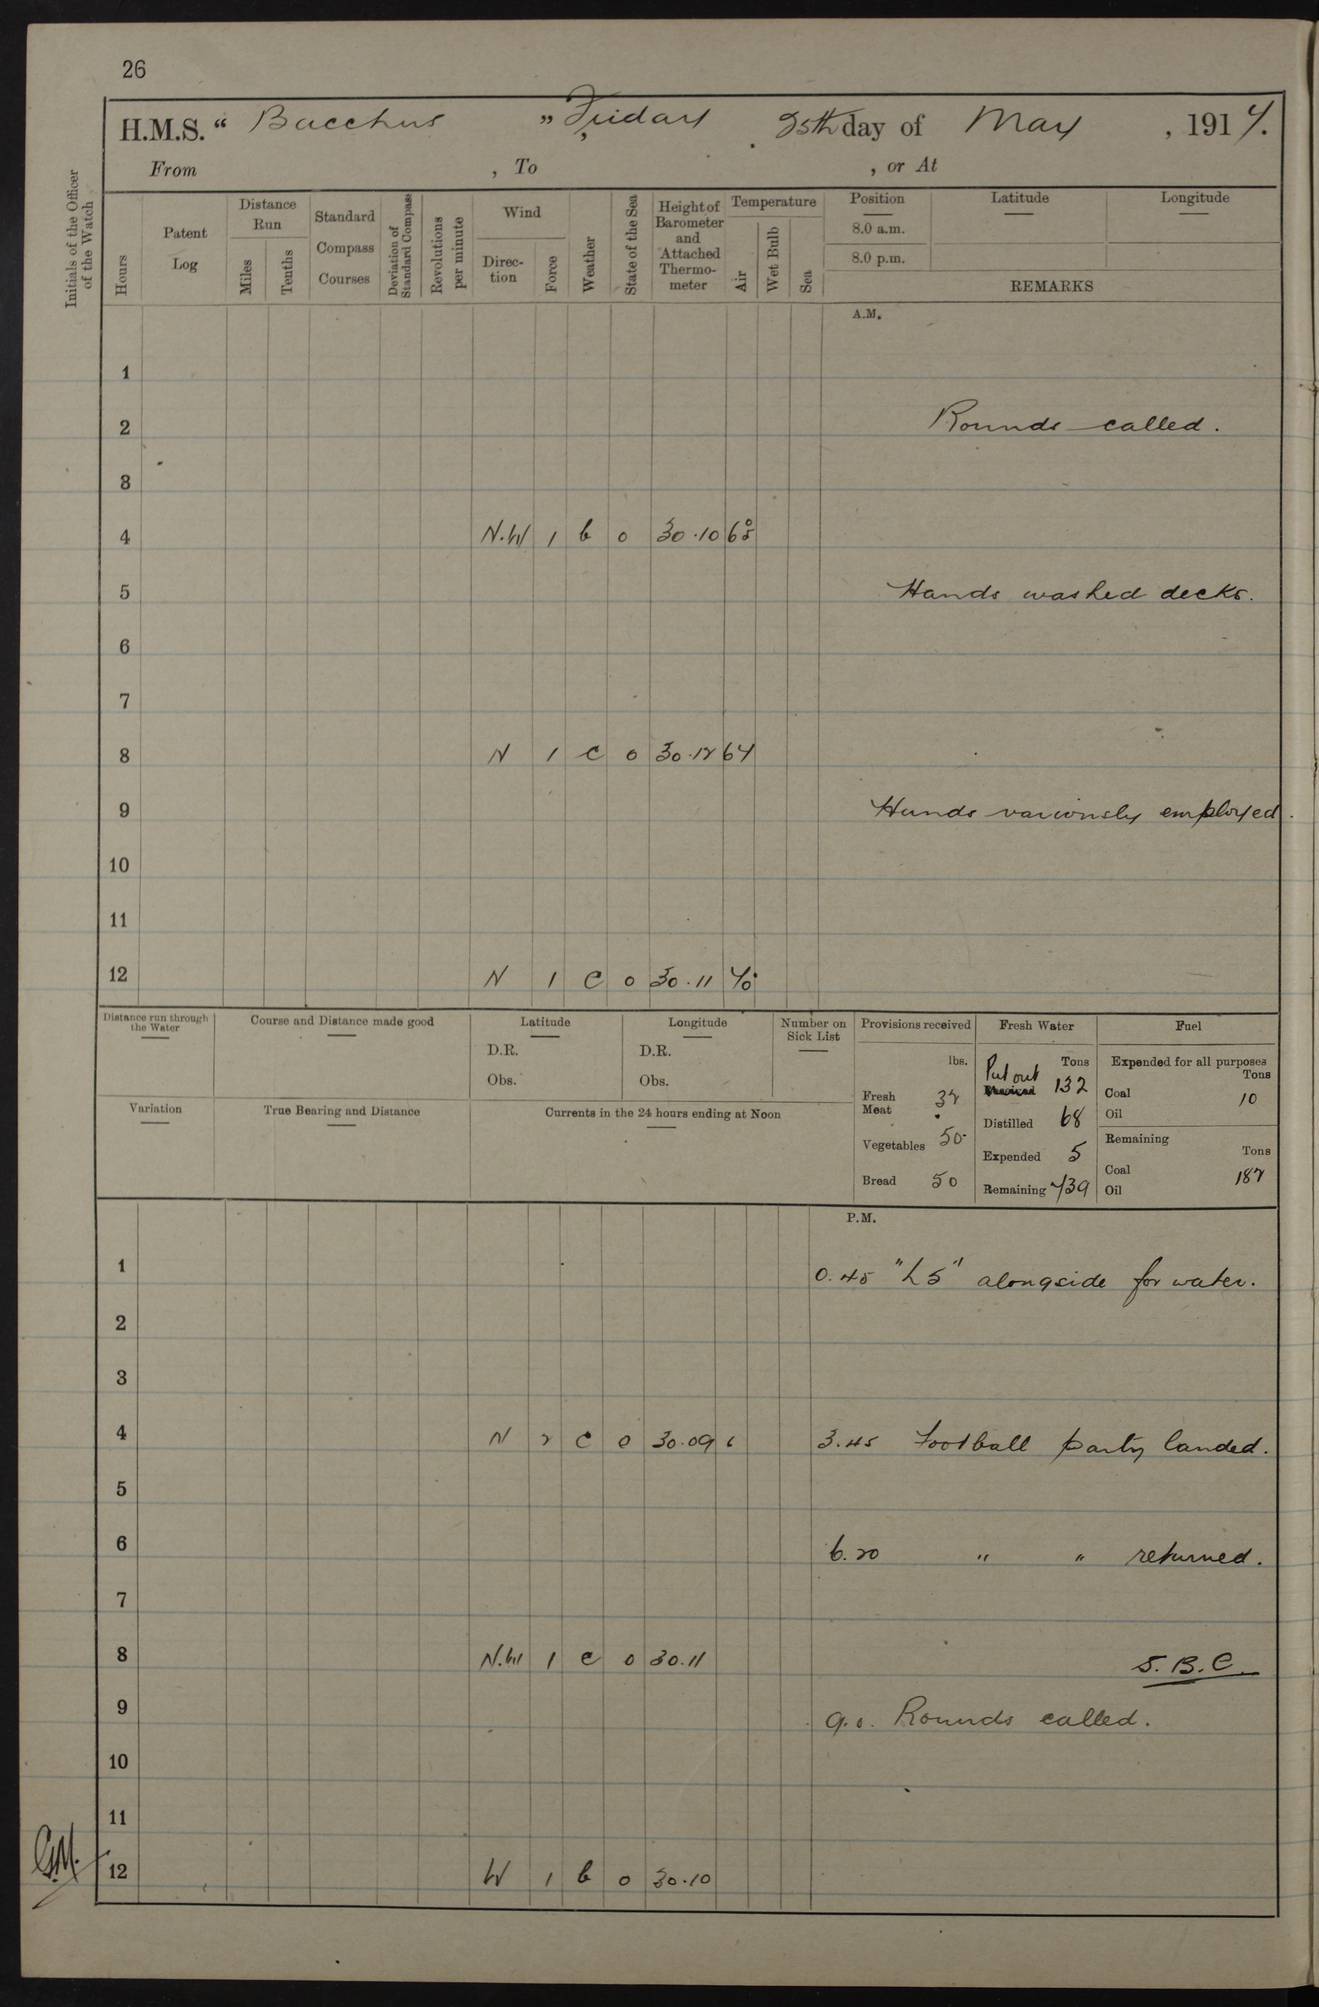 26
H.M.S. “ Bacchus ” Friday , 25th day of May , 1917.
From , To , or At
Initials of the Officer of the Watch
Hours
Patent Log
Distance Run
Miles
Tenths
Standard Compass Courses
Deviation of Standard Compass
Revolutions per minute
Wind
Direction
Force
Weather
State of the Sea
Height of Barometer and Attached Thermometer
Temperature
Air
Wet Bulb
Sea
Position
8.0 a.m.
8.0 p.m.
Latitude
Longitude
REMARKS
A.M.
1
2 Rounds called.
3
4 N.W 1 b 0 30.10
5 Hands washed decks.
6
7
8 N 1 c 0 30.12 67
9 Hands variously employed.
10
11
12 N 1 c 0 30.11 70
Distance run through the Water
Course and Distance made good
Latitude
D.R.
Obs.
Longitude
D.R.
Obs.
Number on Sick List
Variation
True Bearing and Distance
Currents in the 24 hours ending at Noon
Provisions received
lbs.
Fresh Meat 32
Vegetables 50
Bread 50
Fresh Water
Tons
Put out Received 132
Distilled 68
Expended 5
Remaining 739
Fuel
Expended for all purposes
Tons
Coal 10
Oil
Remaining
Tons
Coal 182
Oil
P.M.
1 0.45 "L5" alongside for water.
2
3
4 N 2 c 0 30.09 3.45 Football party landed.
5
6 6.20 " " returned.
7
8 N.W 1 c 0 30.11 S.B.C.
9 9.0. Rounds called.
10
11
12 W 1 b 0 30.10
G.M.